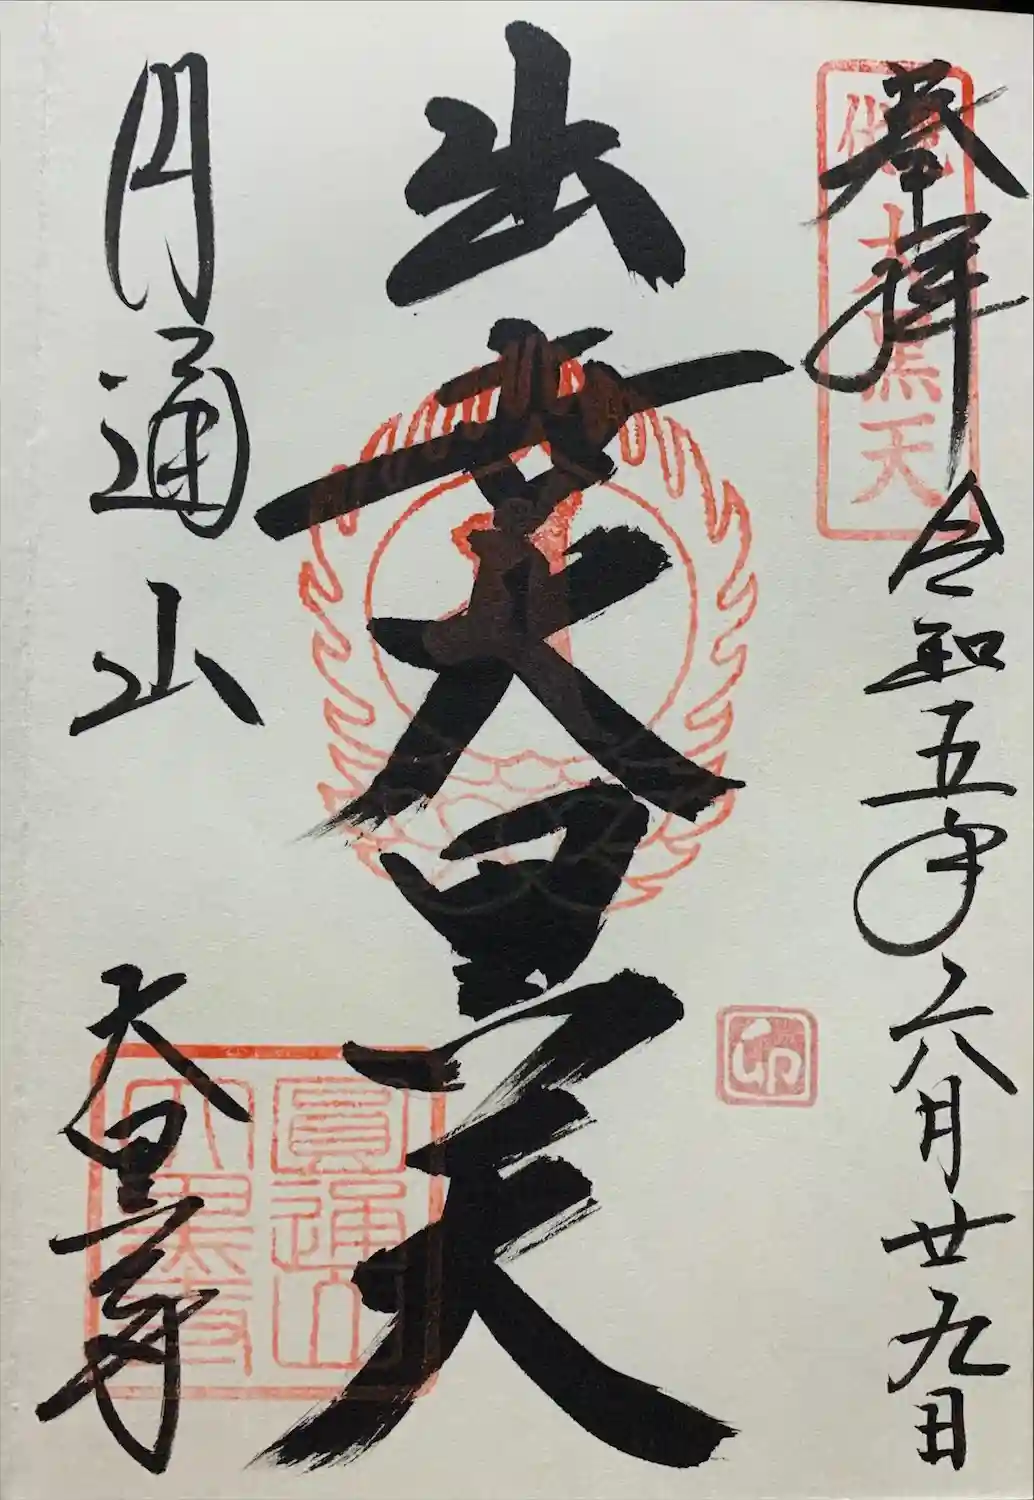 奉拝 令和五年六月廿九日
大黒天
出世大黒天
卯
円通山 大黒寺
圓通山
大黒寺